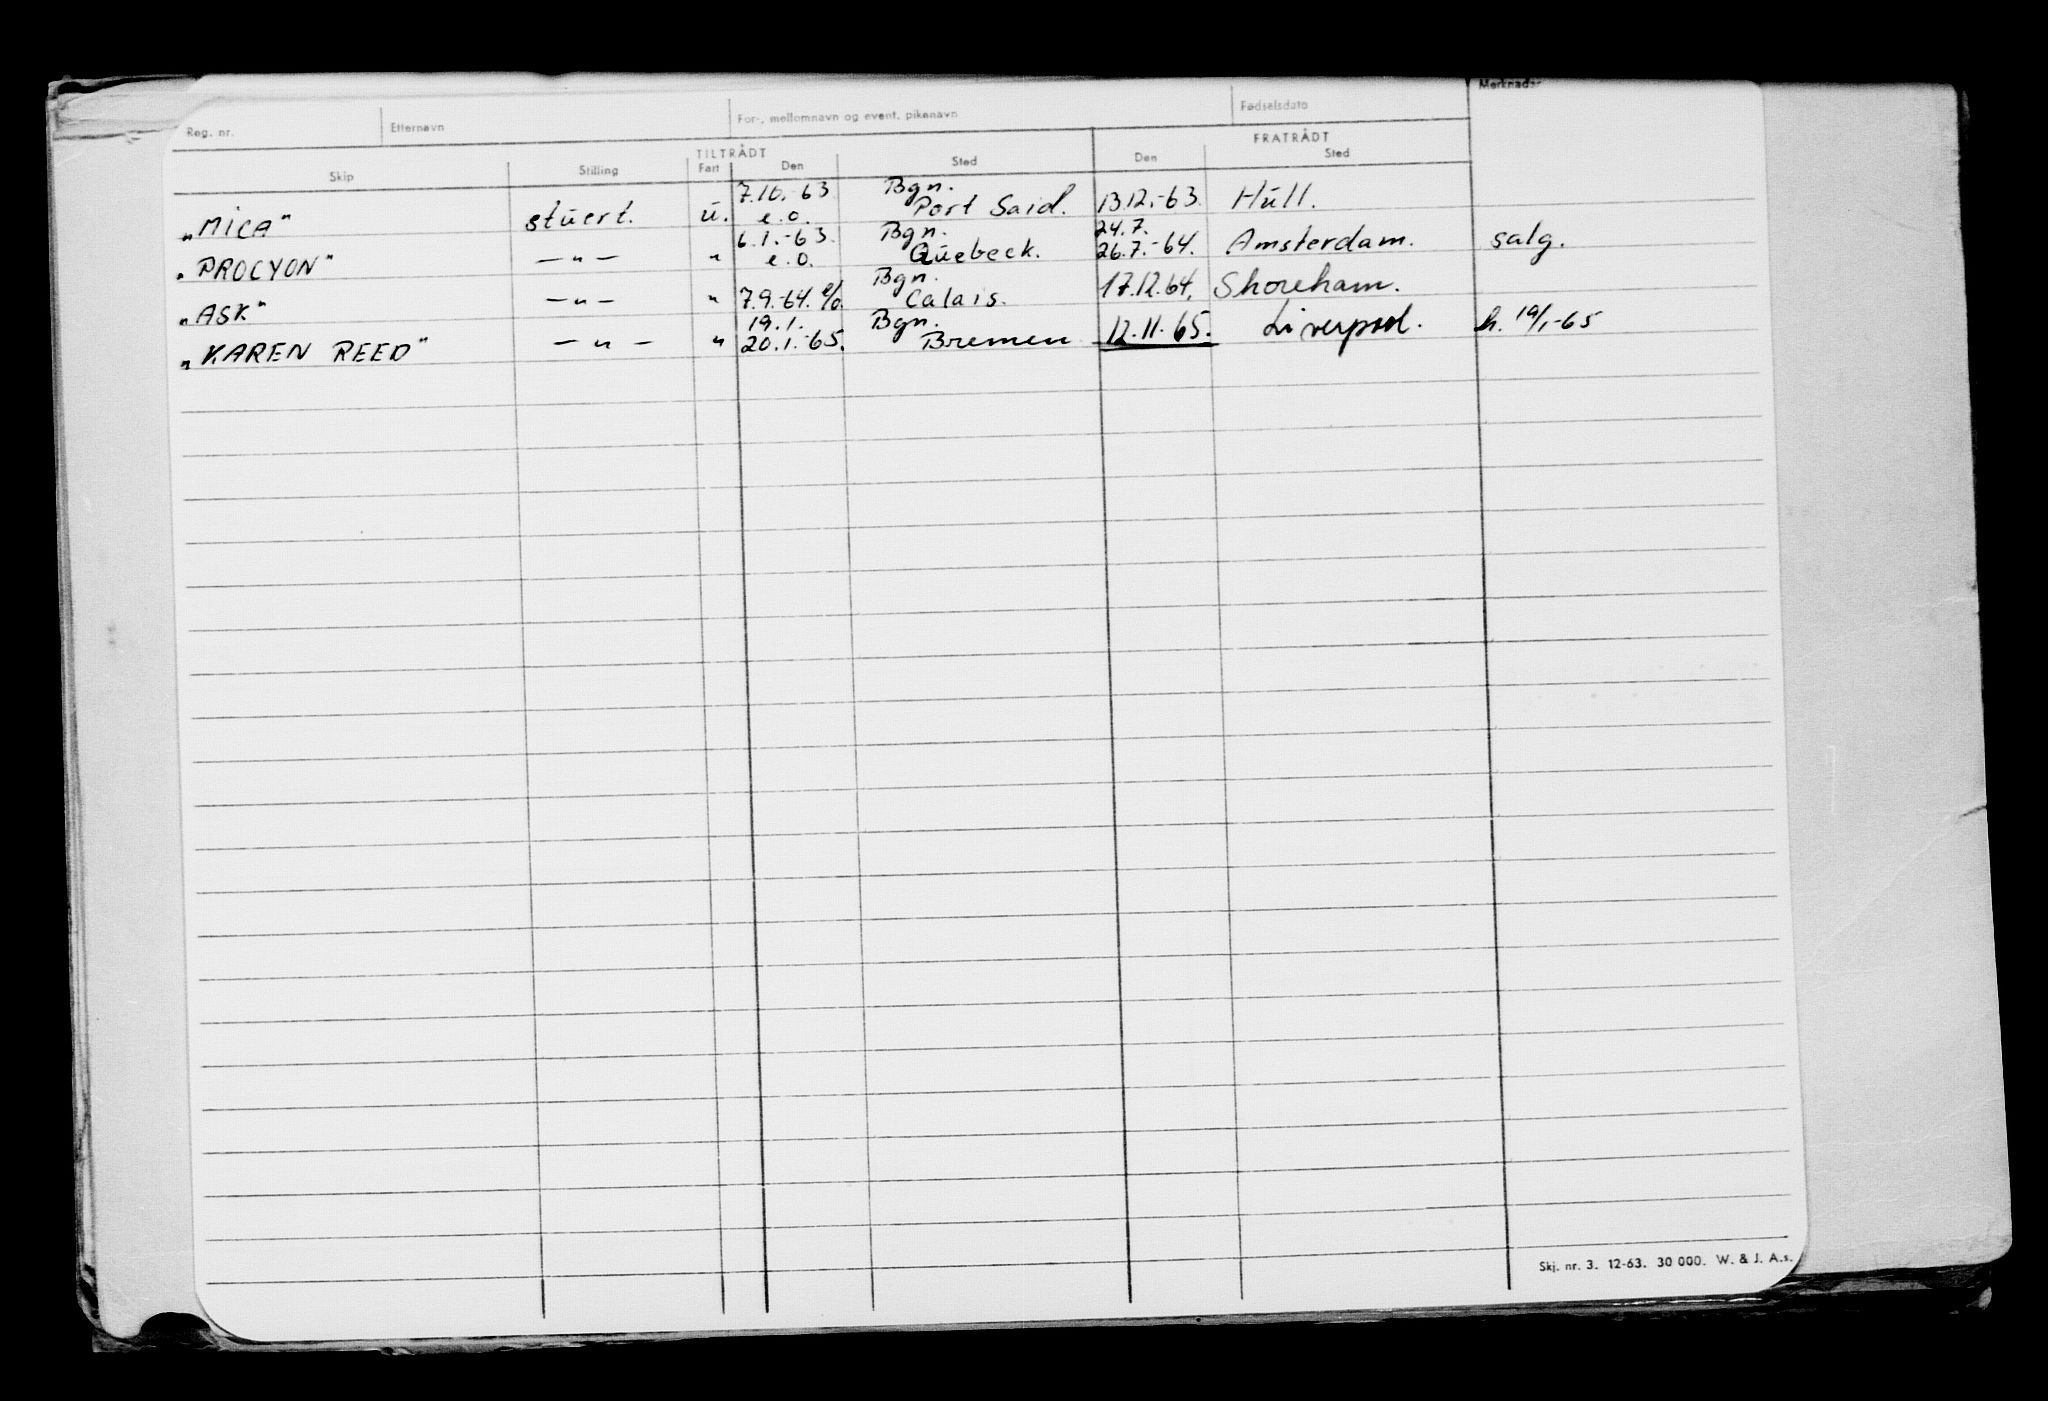 Reg. nr. Etternavn For-, mellomnavn og event. pikenavn Fødselsdato Merknader
TILTRÅDT FRATRÅDT
Skip Stilling Fart Den Sted Den Sted
7.10.-63 Bgn.
„MICA" stuert. u. e.o. Port Said. 13.12.-63. Hull.
6.1.-63. Bgn. 24.7.
„PROCYON" —„— " e.o. Quebeck. 26.7.-64. Amsterdam. salg.
Bgn.
„ASK" —„— " 7.9.-64. e/o. Calais. 17.12.64. Shoreham.
19.1. Bgn.
„KAREN REED" —„— " 20.1.-65. Bremen 12.11.65. Liverpool. h. 19/1-65
Skj. nr. 3. 12-63. 30 000. W. & J. A.s.